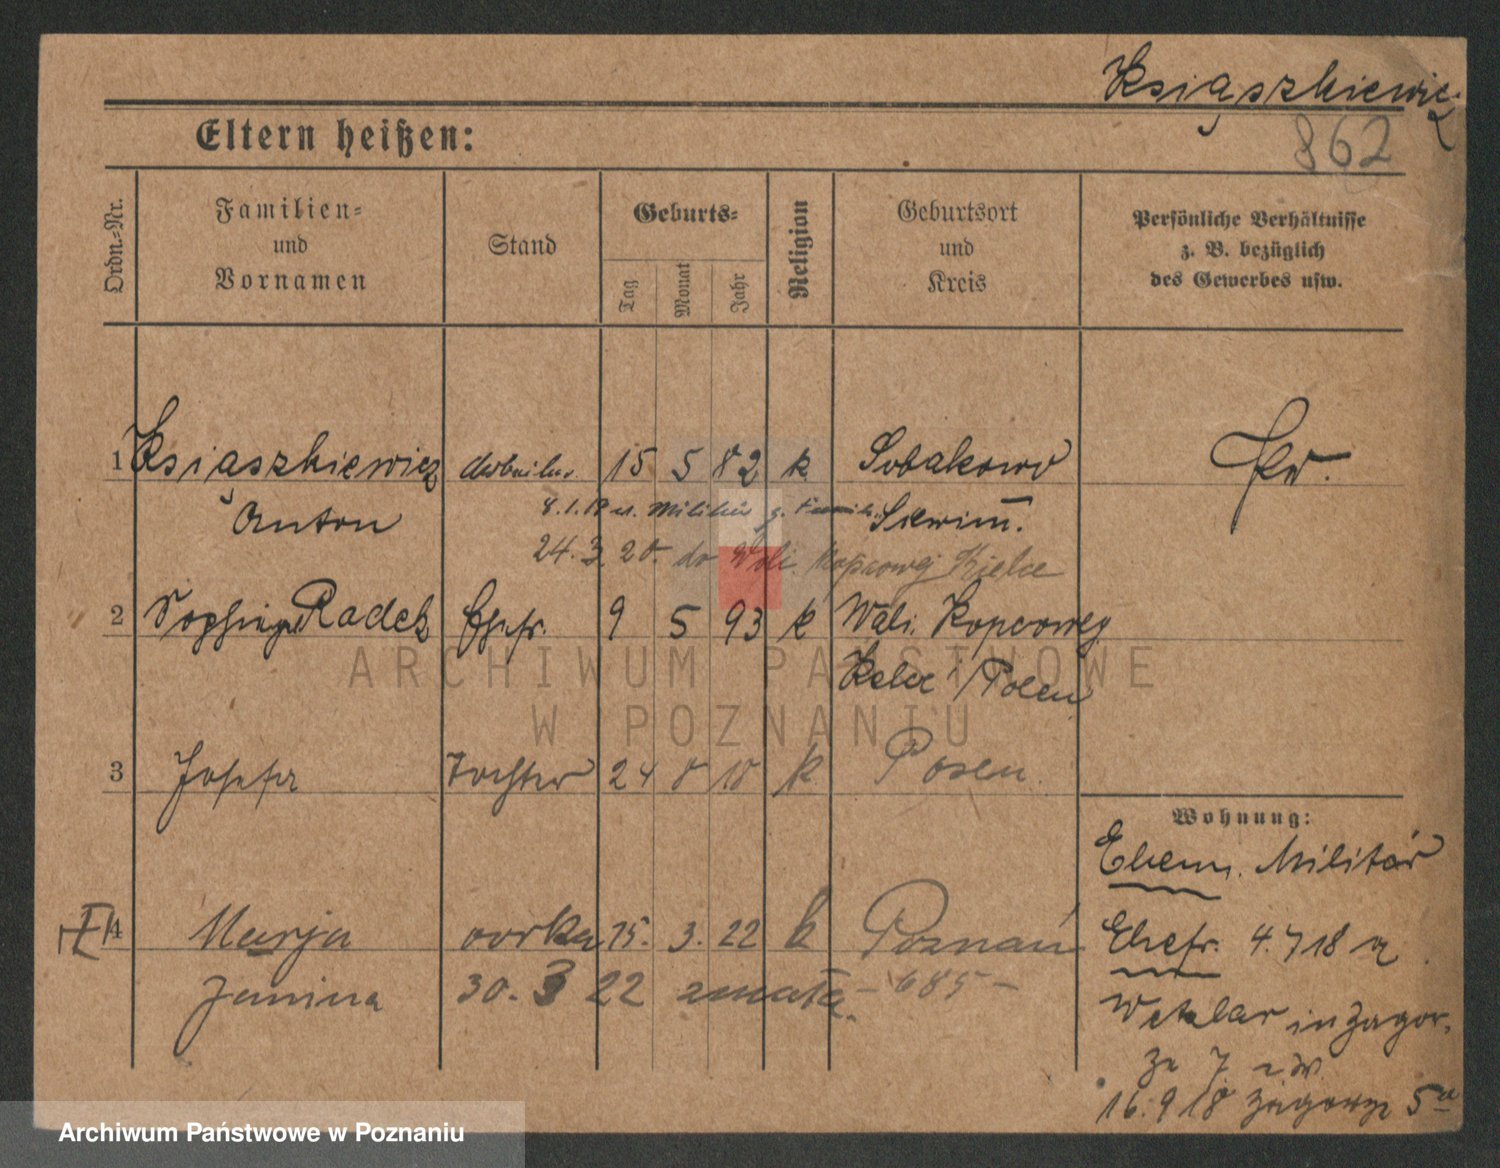 Książkiewicz
862
Eltern heißen:
Ordn.-Nr.
Familien-
und
Vornamen
Stand
Geburts-
Tag
Monat
Jahr
Religion
Geburtsort
und
Kreis
Persönliche Verhältnisse
z. B. bezüglich
des Gewerbes usw.
1 Ksiąszkiewicz Arbeiter 15 5 82 k Sobakowo
Anton 8.1.18 Militär Schrimm.
24.3.20. do Woli Kopcowej Kielce
2 Radek Ehefr. 9 5 93 k Woli. Kopcowej
Kelce / Polen
3 Josefa Tochter 24 8 10 k Posen.
Wohnung:
Ehem. Militär
4 Marja córka 15. 3. 22 k Poznań
Ehefr. 4.7 18
Janina 30. 3 22 zmarła - 685 -
Wetzlar in Zagor.
ze 7
16.9 18 Zagorze 5a
ARCHIWUM PAŃSTWOWE
W POZNANIU
Archiwum Państwowe w Poznaniu